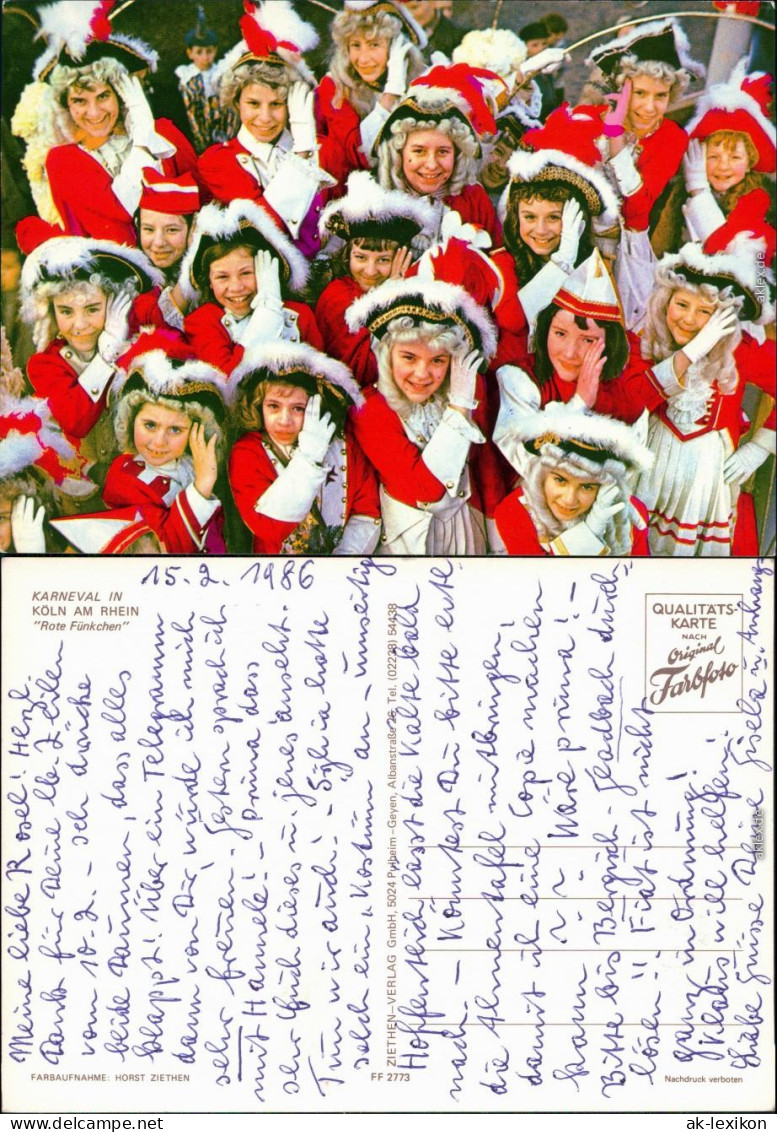 KARNEVAL IN
KÖLN AM RHEIN
"Rote Fünkchen"
15.2.1986
Meine liebe Rosel! Herzl.
Dank für Deine lb. Zeilen
vom 10.2. – Ich drücke
beide Daumen, dass alles
klappt! Über ein Telegramm
dann von Dir würde ich mich
sehr freuen. Gestern sprach ich
mit Hannele! – Prima dass
Ihr Euch dieses u. jenes anseht.
Tun wir auch! – Sylvia hatte
solch ein "Kostüm" an – umseitig
ZIETHEN-VERLAG GmbH, 5024 Pulheim-Geyen, Albanstraße 26, Tel. (02238) 54438
Hoffentlich lässt die Kälte bald
nach. – Könntest Du bitte
die Ahnentafel mitbringen,
damit ich eine Copie machen
kann ?? Wäre prima! –
Bitte bis Bergisch-Gladbach
lösen!! Fiat ist nicht
ganz in Ordnung!
Klaus will helfen!
Liebe Grüsse Deine Gisela u. Anhang
QUALITÄTS-
KARTE
NACH
Original
Farbfoto
FARBAUFNAHME: HORST ZIETHEN
FF 2773
Nachdruck verboten
aklex.de
aklex.de
aklex.de
aklex.de
www.ansichtskarten-lexikon.de
ak-lexikon